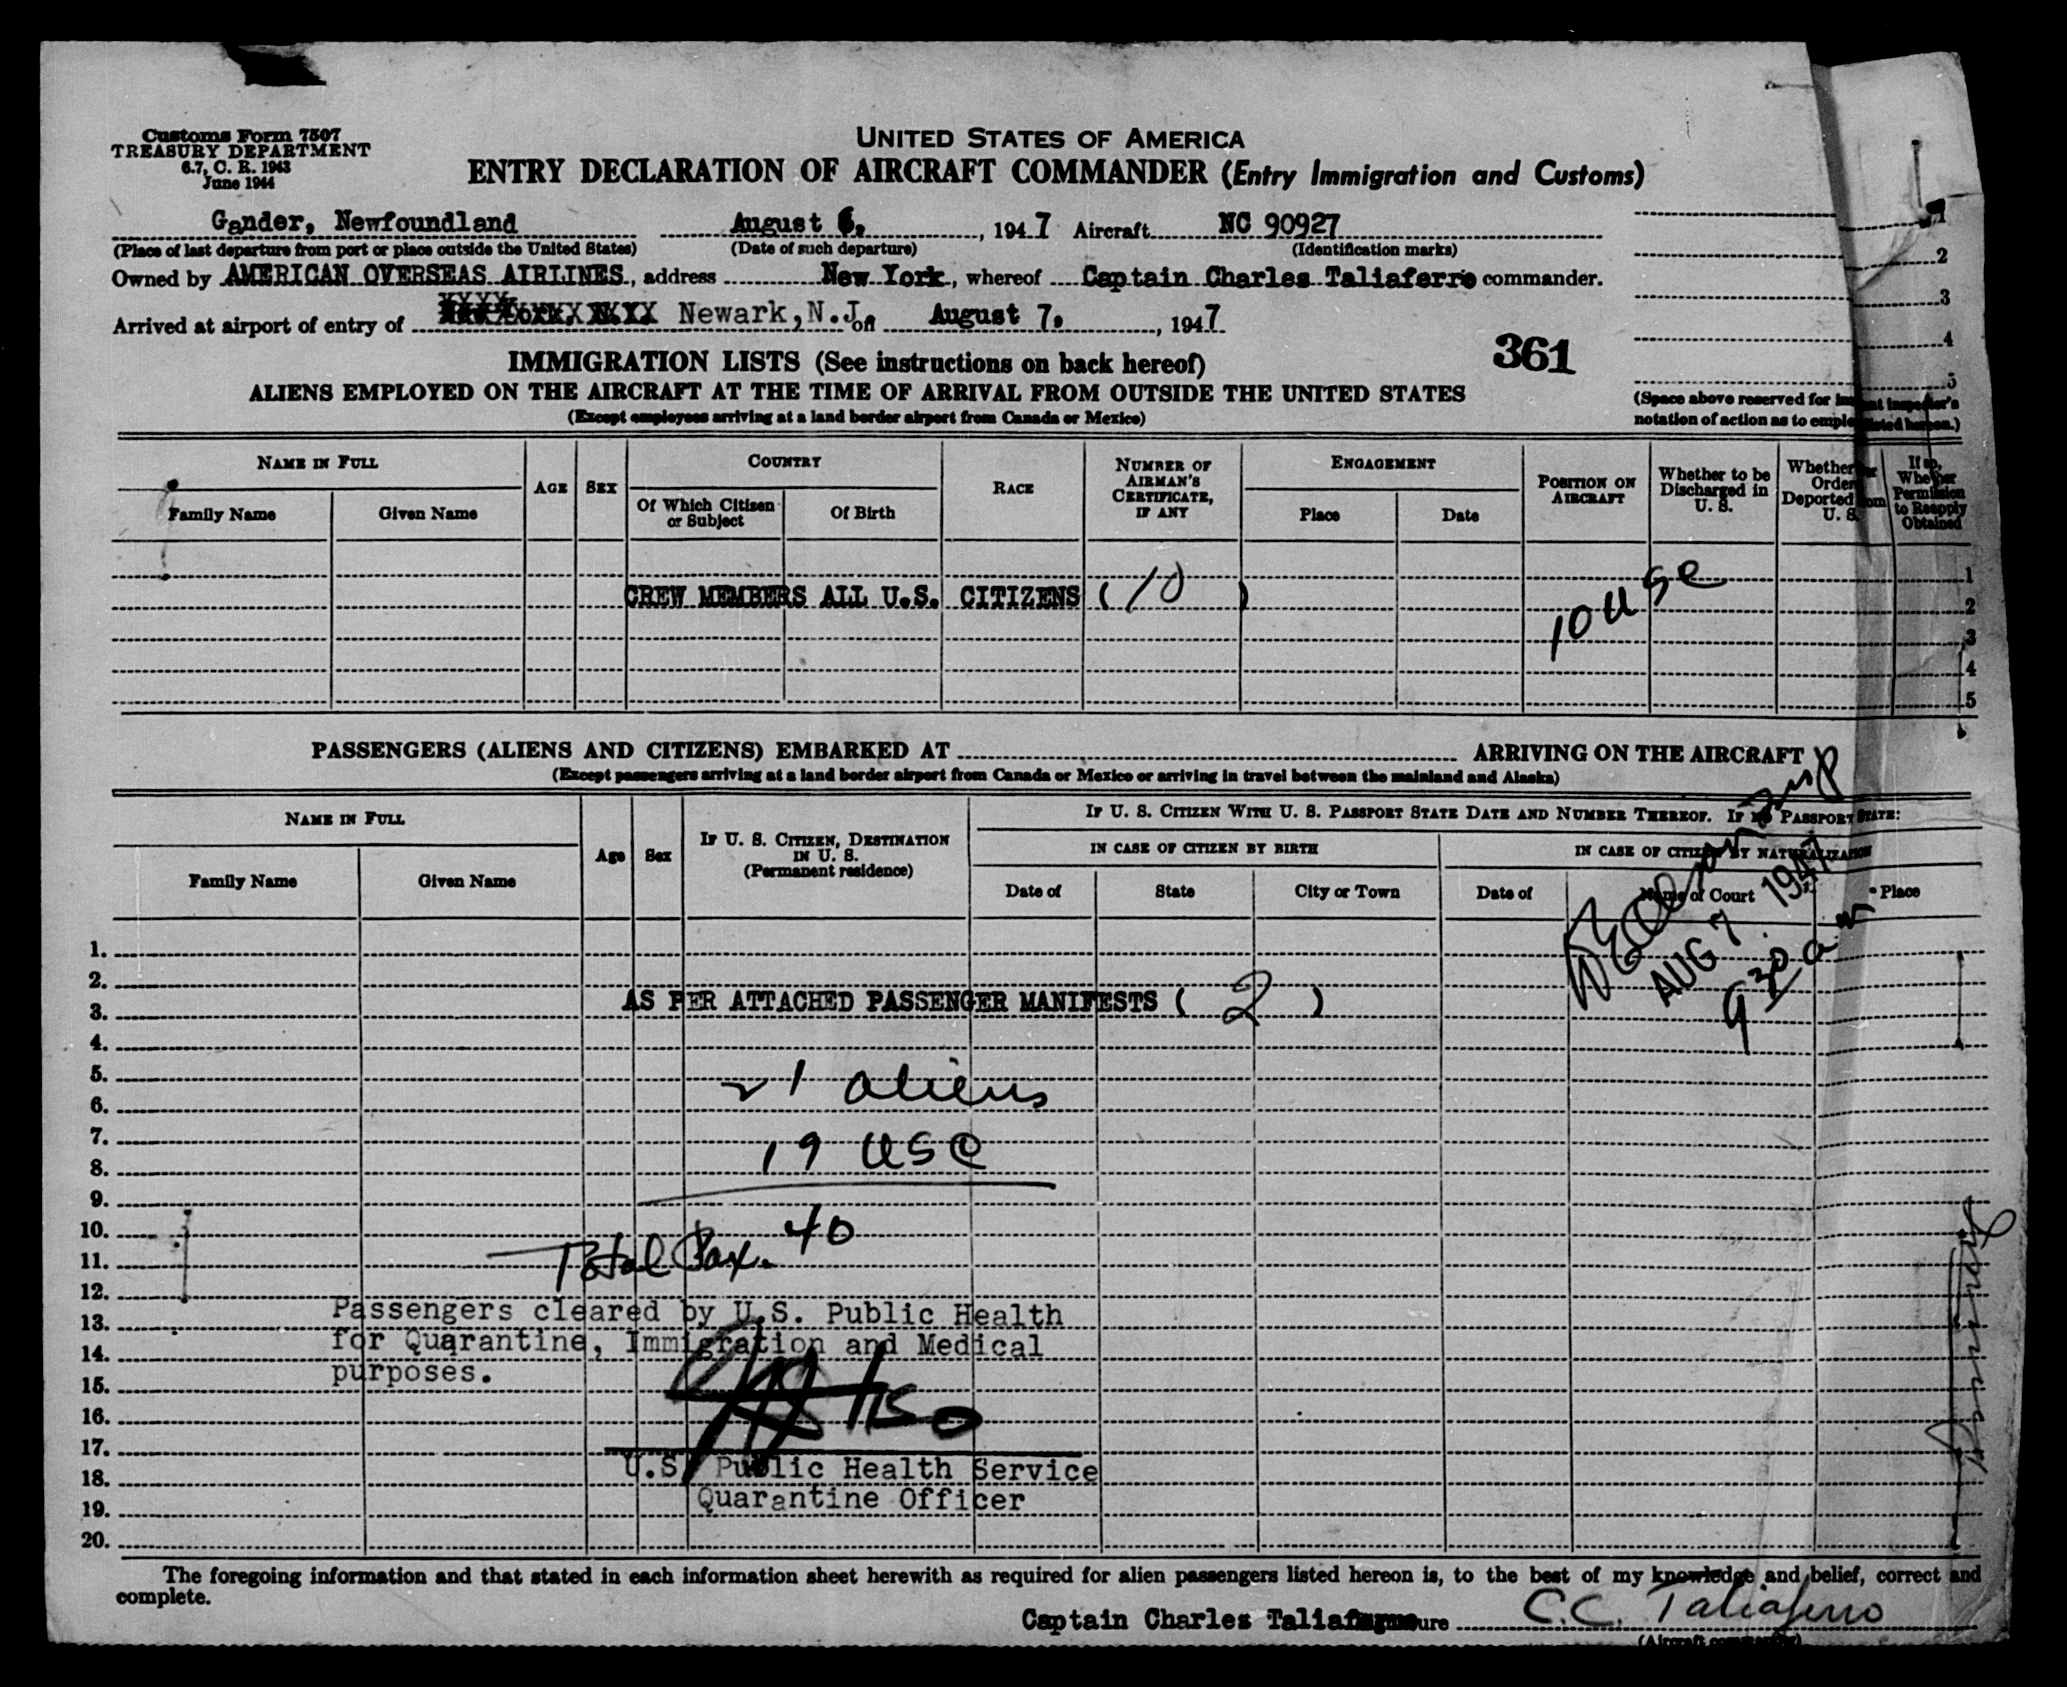 Customs Form 7507
TREASURY DEPARTMENT
6.7, C. R. 1943
June 1944
UNITED STATES OF AMERICA
ENTRY DECLARATION OF AIRCRAFT COMMANDER (Entry Immigration and Customs)
Gander, Newfoundland August 6, 1947 Aircraft NC 90927
(Place of last departure from port or place outside the United States) (Date of such departure) (Identification marks)
Owned by AMERICAN OVERSEAS AIRLINES, address New York, whereof Captain Charles Taliaferro commander.
Arrived at airport of entry of Newark, N.J. on August 7, 1947
1
2
3
4
5
361
IMMIGRATION LISTS (See instructions on back hereof)
ALIENS EMPLOYED ON THE AIRCRAFT AT THE TIME OF ARRIVAL FROM OUTSIDE THE UNITED STATES
(Except employees arriving at a land border airport from Canada or Mexico)
(Space above reserved for
notation of action as to hereon.)
NAME IN FULL
Family Name Given Name
AGE SEX
COUNTRY
Of Which Citizen or Subject
Of Birth
RACE
NUMBER OF AIRMAN'S CERTIFICATE, IF ANY
ENGAGEMENT
Place Date
POSITION ON AIRCRAFT
Whether to be Discharged in U. S.
Whether Deported U. S.
If so, Whether Permission to Reapply Obtained
CREW MEMBERS ALL U.S. CITIZENS ( 10 )
10 USC
1
2
3
4
5
PASSENGERS (ALIENS AND CITIZENS) EMBARKED AT ARRIVING ON THE AIRCRAFT
(Except passengers arriving at a land border airport from Canada or Mexico or arriving in travel between the mainland and Alaska)
NAME IN FULL
Family Name Given Name
Age Sex
IF U. S. CITIZEN, DESTINATION IN U. S.
(Permanent residence)
IF U. S. CITIZEN WITH U. S. PASSPORT STATE DATE AND NUMBER THEREOF. IF NO PASSPORT STATE:
IN CASE OF CITIZEN BY BIRTH
IN CASE OF CITIZEN BY NATURALIZATION
Date of State City or Town Date of Name of Court Place
AUG 7 1947
9 30 am
1.
2.
3. AS PER ATTACHED PASSENGER MANIFESTS ( 2 )
4.
5. 21 aliens
6.
7. 19 USC
8.
9.
10. Total Pax. 40
11.
12.
13. Passengers cleared by U.S. Public Health
14. for Quarantine, Immigration and Medical
15. purposes.
16.
17.
18. U.S. Public Health Service
19. Quarantine Officer
20.
The foregoing information and that stated in each information sheet herewith as required for alien passengers listed hereon is, to the best of my knowledge and belief, correct and
complete.
Captain Charles C.C. Taliaferro
(Aircraft commander)